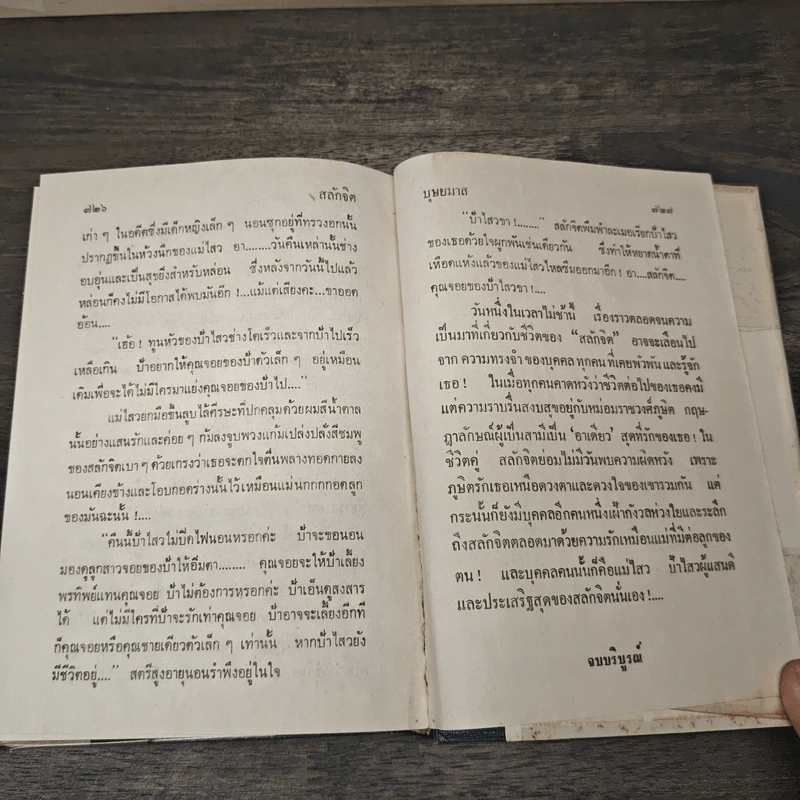 ๗๒๖
สลักจิต
เก่า ๆ ในอดีตซึ่งมีเด็กหญิงเล็ก ๆ นอนซุกอยู่ที่ทรวงอกนั้น
ปรากฏขึ้นในห้วงนึกของแม่ไสว อา........วันคืนเหล่านั้นช่าง
อบอุ่นและเป็นสุขยิ่งสำหรับหล่อน ซึ่งหลังจากวันนี้ไปแล้ว
หล่อนก็คงไม่มีโอกาสได้พบมันอีก !...แม้แต่เสียงคะ...ขาออด
อ้อน....
"เฮ้อ ! ทูนหัวของป้าไสวช่างโตเร็วและจากป้าไปเร็ว
เหลือเกิน ป้าอยากให้คุณจอยของป้าตัวเล็ก ๆ อยู่เหมือน
เดิมเพื่อจะได้ไม่มีใครมาแย่งคุณจอยของป้าไป...."
แม่ไสวยกมือขึ้นลูบไล้ศีรษะที่ปกคลุมด้วยผมสีน้ำตาล
นั้นอย่างแสนรักและค่อย ๆ ก้มลงจูบพวงแก้มเปล่งปลั่งสีชมพู
ของสลักจิตเบา ๆ ด้วยเกรงว่าเธอจะตกใจตื่นพลางทอดกายลง
นอนเคียงข้างและโอบกอดร่างนั้นไว้เหมือนแม่นกกกกอดลูก
ของมันฉะนั้น !....
"คืนนี้ป้าไสวไม่ปิดไฟนอนหรอกค่ะ ป้าจะขอนอน
มองดูลูกสาวจอยของป้าให้อิ่มตา........ คุณจอยจะให้ป้าเลี้ยง
พรทิพย์แทนคุณจอย ป้าไม่ต้องการหรอกค่ะ ป้าเอ็นดูสงสาร
ได้ แต่ไม่มีใครที่ป้าจะรักเท่าคุณจอย ป้าอาจจะเลี้ยงอีกที
ก็คุณจอยหรือคุณชายเดียวตัวเล็ก ๆ เท่านั้น หากป้าไสวยัง
มีชีวิตอยู่...." สตรีสูงอายุนอนรำพึงอยู่ในใจ
บุษยมาส
๗๒๗
"ป้าไสวขา !........" สลักจิตพึมพำละเมอเรียกป้าไสว
ของเธอด้วยใจผูกพันเช่นเดียวกัน ซึ่งทำให้หยาดน้ำตาที่
เหือดแห้งแล้วของแม่ไสวไหลซึมออกมาอีก ! อา....สลักจิต....
คุณจอยของป้าไสวขา !....
วันหนึ่งในเวลาไม่ช้านี้ เรื่องราวตลอดจนความ
เป็นมาที่เกี่ยวกับชีวิตของ "สลักจิต" อาจจะเลือนไป
จาก ความทรงจำ ของบุคคล ทุกคน ที่เคยพัวพัน และรู้จัก
เธอ ! ในเมื่อทุกคนคาดหวังว่าชีวิตต่อไปของเธอคงมี
แต่ความราบรื่นสงบสุขอยู่กับหม่อมราชวงศ์ภูษิต กฤษ-
ฎาลักษณ์ผู้เป็นสามีเป็น 'อาเดียว' สุดที่รักของเธอ ! ใน
ชีวิตคู่ สลักจิตย่อมไม่มีวันพบความผิดหวัง เพราะ
ภูษิตรักเธอเหนือดวงตาและดวงใจของเขารวมกัน แต่
กระนั้นก็ยังมีบุคคลอีกคนหนึ่งเฝ้ากังวลห่วงใยและระลึก
ถึงสลักจิตตลอดมาด้วยความรักเหมือนแม่ที่มีต่อลูกของ
ตน ! และบุคคลคนนั้นก็คือแม่ไสว ป้าไสวผู้แสนดี
และประเสริฐสุดของสลักจิตนั่นเอง !....
จบบริบูรณ์